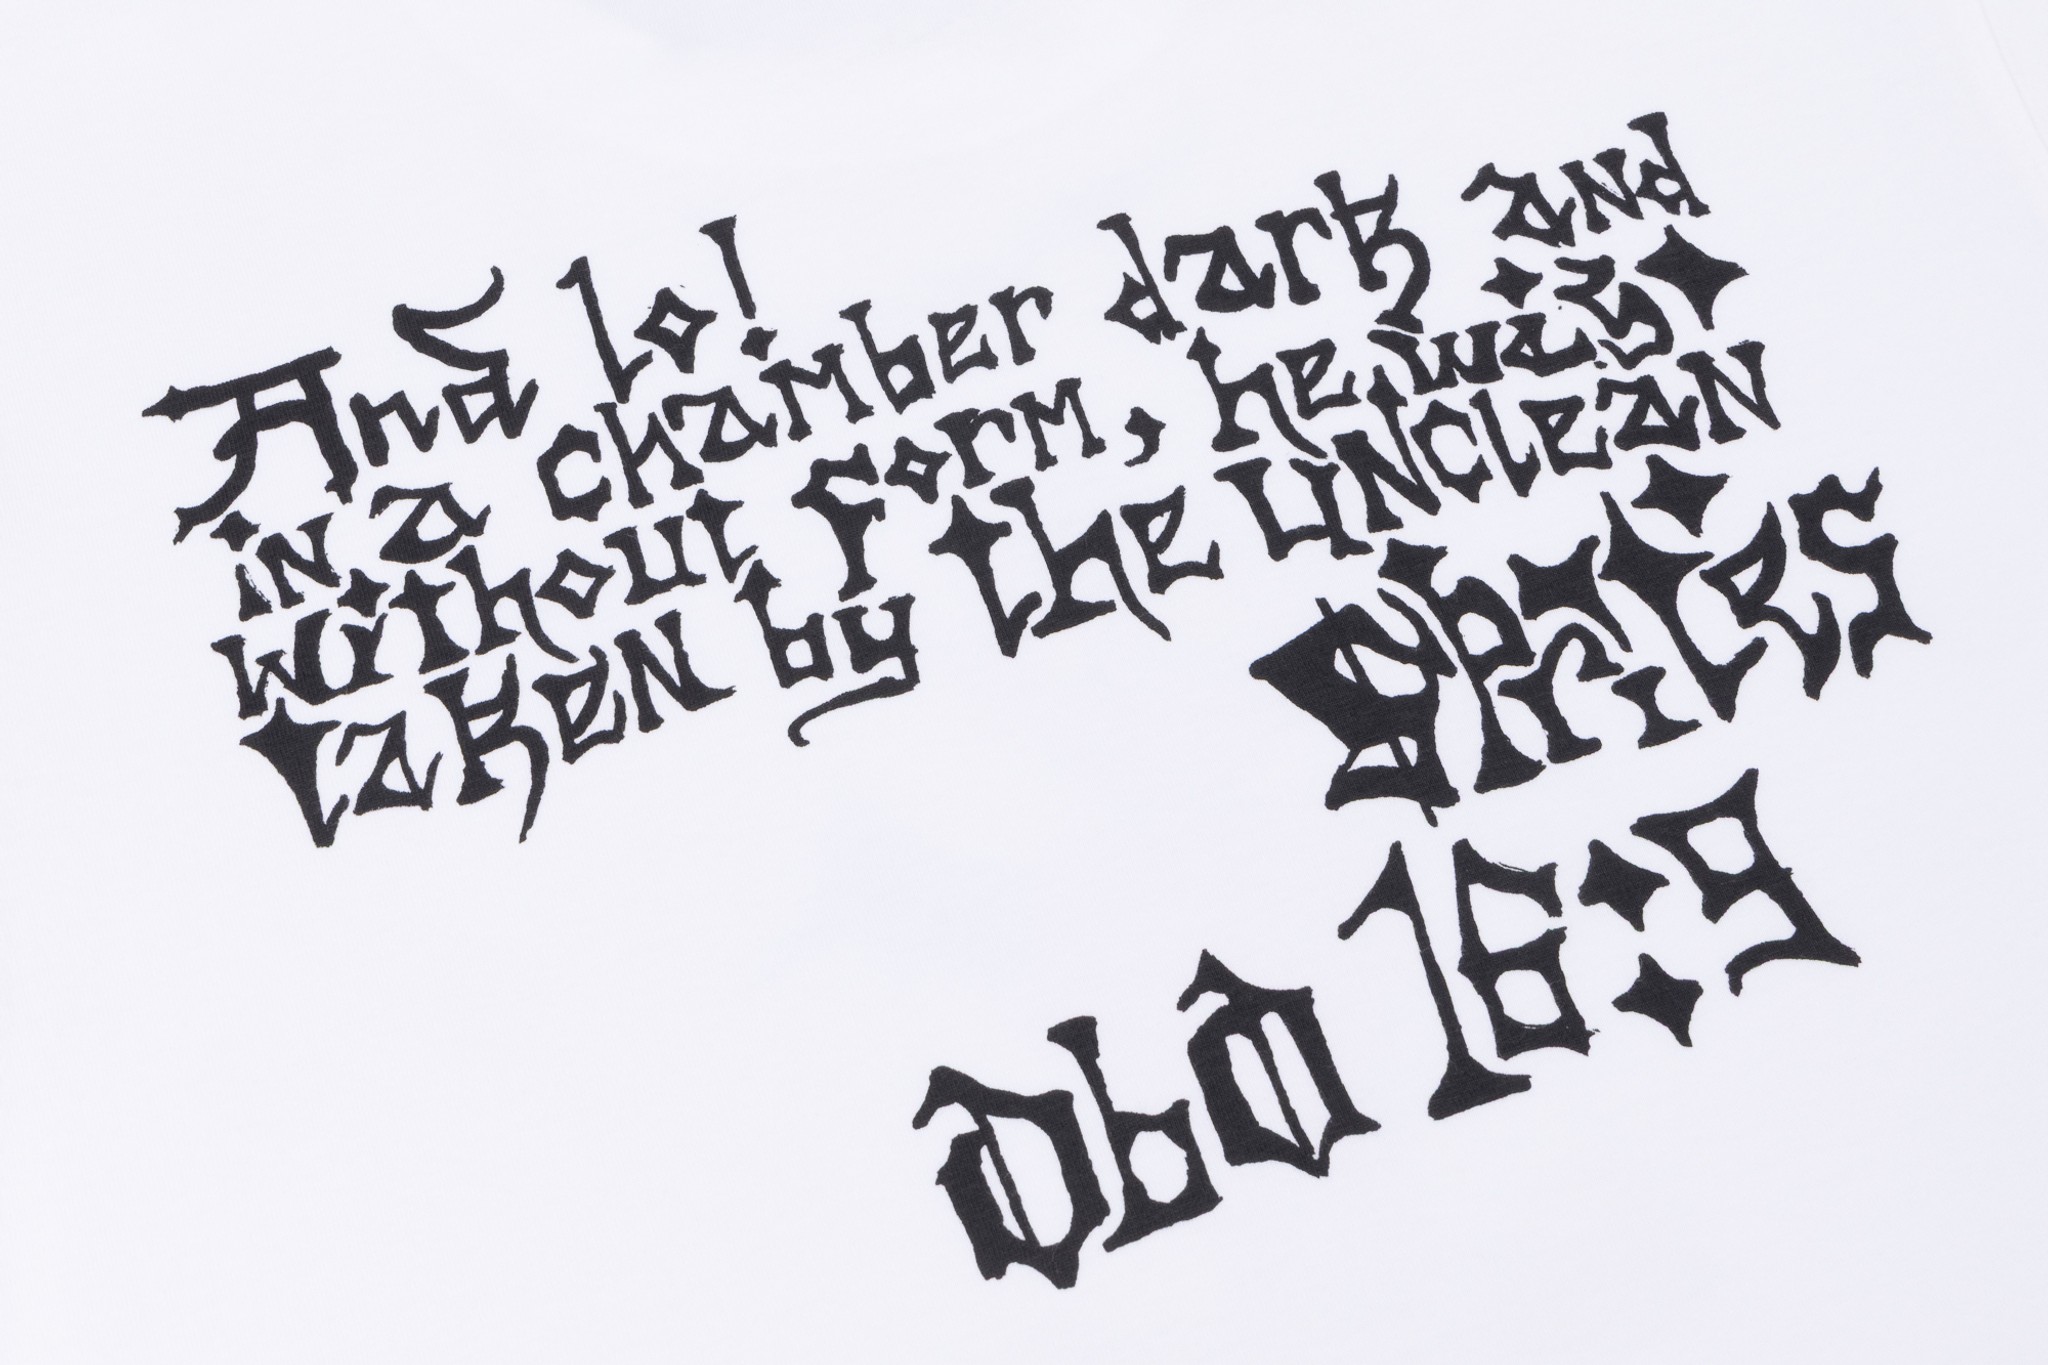 And lo!
in a chamber dark and
without form, he was
taken by the unclean
sprites
Oba 16:9